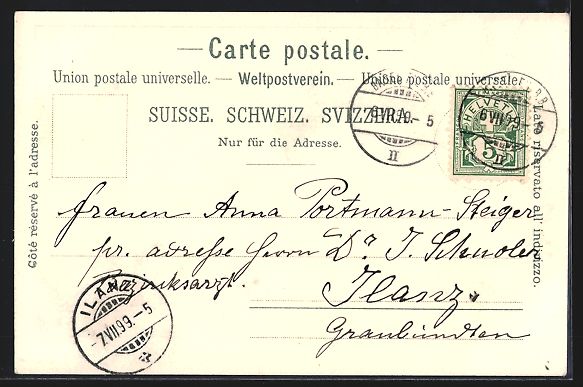 Carte postale.
Union postale universelle. — Weltpostverein. — Unione postale universale.
SUISSE. SCHWEIZ. SVIZZERA.
Nur für die Adresse.
Côté réservé à l'adresse.
Lato riservato all' indirizzo.
6 VII 99. - 5
II
HELVETIA
5
6 VII 99. - 5
II
Frauen Anna Portmann-Steiger
pr. adresse Herrn Dr. J.
Bezirksarzt.
Ilanz.
Graubünden
ILANZ
7 VII 99. - 5